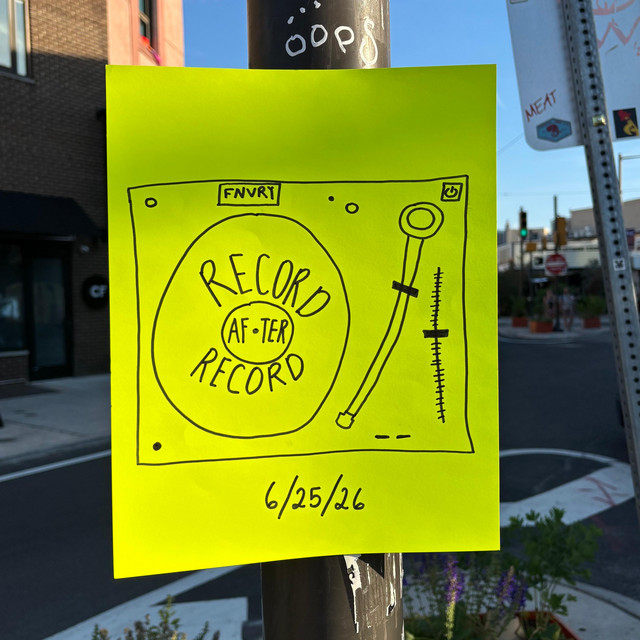 OOPS
MEAT
FNVRT
RECORD
AF•TER
RECORD
6/25/26